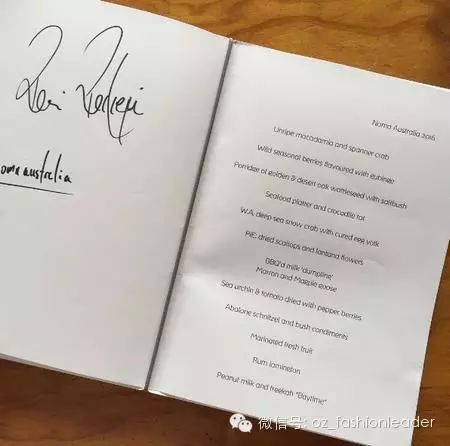 René Redzepi
noma australia
Noma Australia 2016
Unripe macadamia and spanner crab
Wild seasonal berries flavoured with gubinge
Porridge of golden & desert oak wattleseed with saltbush
Seafood platter and crocodile fat
W.A. deep sea snow crab with cured egg yolk
PIE: dried scallops and lantana flowers
BBQ'd milk 'dumpling'
Marron and Magpie goose
Sea urchin & tomato dried with pepper berries
Abalone schnitzel and bush condiments
Marinated fresh fruit
Rum lamington
Peanut milk and freekah "Baytime"
微信号: oz_fashionleader